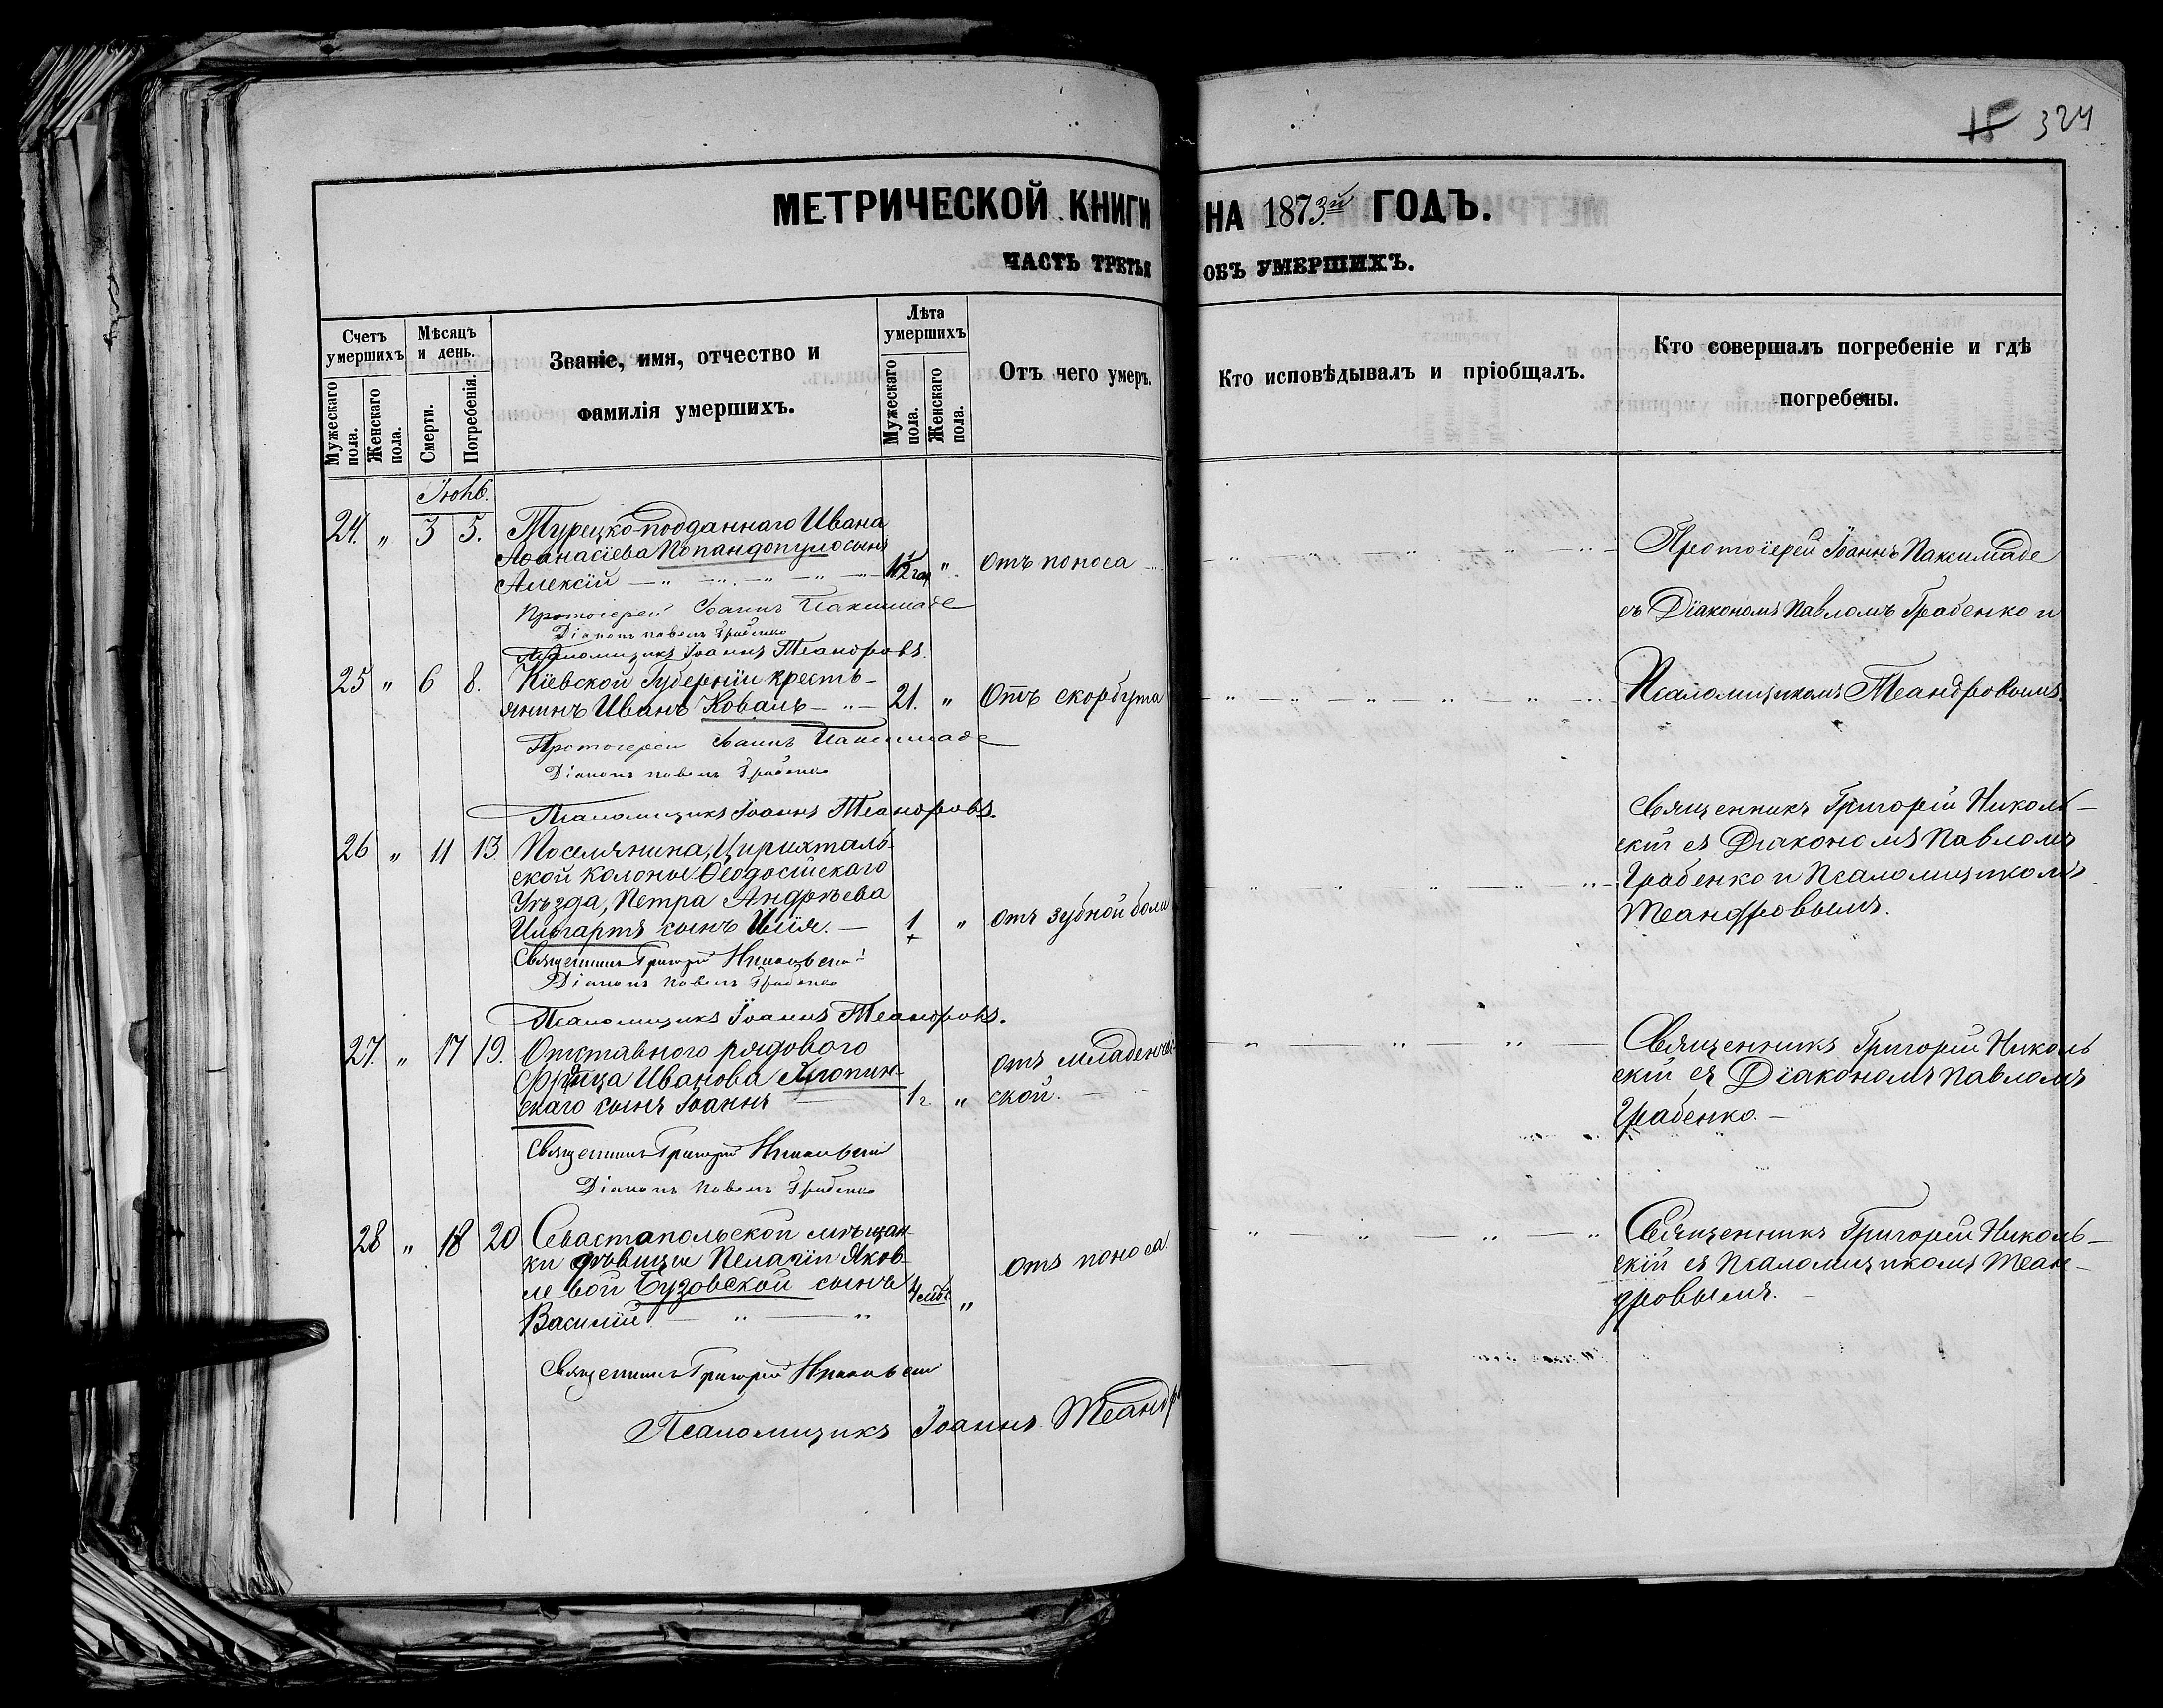 15 324
МЕТРИЧЕСКОЙ КНИГИ НА 1873й ГОДЪ.
ЧАСТЬ ТРЕТЬЯ ОБЪ УМЕРШИХЪ.
Счетъ умершихъ
Мужескаго пола.
Женскаго пола.
Мѣсяцъ и день.
Смерти.
Погребенія.
Званіе, имя, отчество и
фамилія умершихъ.
Лѣта умершихъ
Мужескаго пола.
Женскаго пола.
Отъ чего умеръ.
Кто исповѣдывалъ и пріобщалъ.
Кто совершалъ погребеніе и гдѣ
погребены.
24. " 3 5. Турецко-подданнаго Ивана
Аѳанасіева Попандопуло сынъ
Алексій " отъ поноса
Протоіерей Іоаннъ Паксимаде
Діаконъ Павелъ Грабенко
Псаломщикъ Іоаннъ Теандровъ.
Протоіерей Іоаннъ Паксимаде
съ Діакономъ Павломъ Грабенко и
Псаломщикомъ Теандровымъ.
25 " 6 8. Кіевской Губерніи кресть-
янинъ Иванъ Коваль 21. " Отъ скорбута
Протоіерей Іоаннъ Паксимаде
Діаконъ Павелъ Грабенко
Псаломщикъ Іоаннъ Теандровъ.
26 " 11 13 Поселянина, Цирихталь-
ской колоніи Ѳеодосійскаго
Уѣзда, Петра Андрѣева
сынъ Илія. 1 " отъ зубной боли
Священникъ Григорій Никольскій
Діаконъ Павелъ Грабенко
Псаломщикъ Іоаннъ Теандровъ.
Священникъ Григорій Николь-
скій съ Діакономъ Павломъ
Грабенко и Псаломщикомъ
Теандровымъ.
27. " 17 19. Отставного рядового
Иванова
скаго сынъ Іоаннъ 1 г " отъ младенче-
ской.
Священникъ Григорій Никольскій
Діаконъ Павелъ Грабенко
Священникъ Григорій Николь
скій съ Діакономъ Павломъ
Грабенко.
28 " 18 20 Севастопольской мѣщан-
ки дѣвицы Пелагіи Яков-
левой Бузовской сынъ
Василій 4 " отъ поноса
Священникъ Григорій Никольскій
Псаломщикъ Іоаннъ Теандр
Священникъ Григорій Николь-
скій съ Псаломщикомъ Теан-
дровымъ.